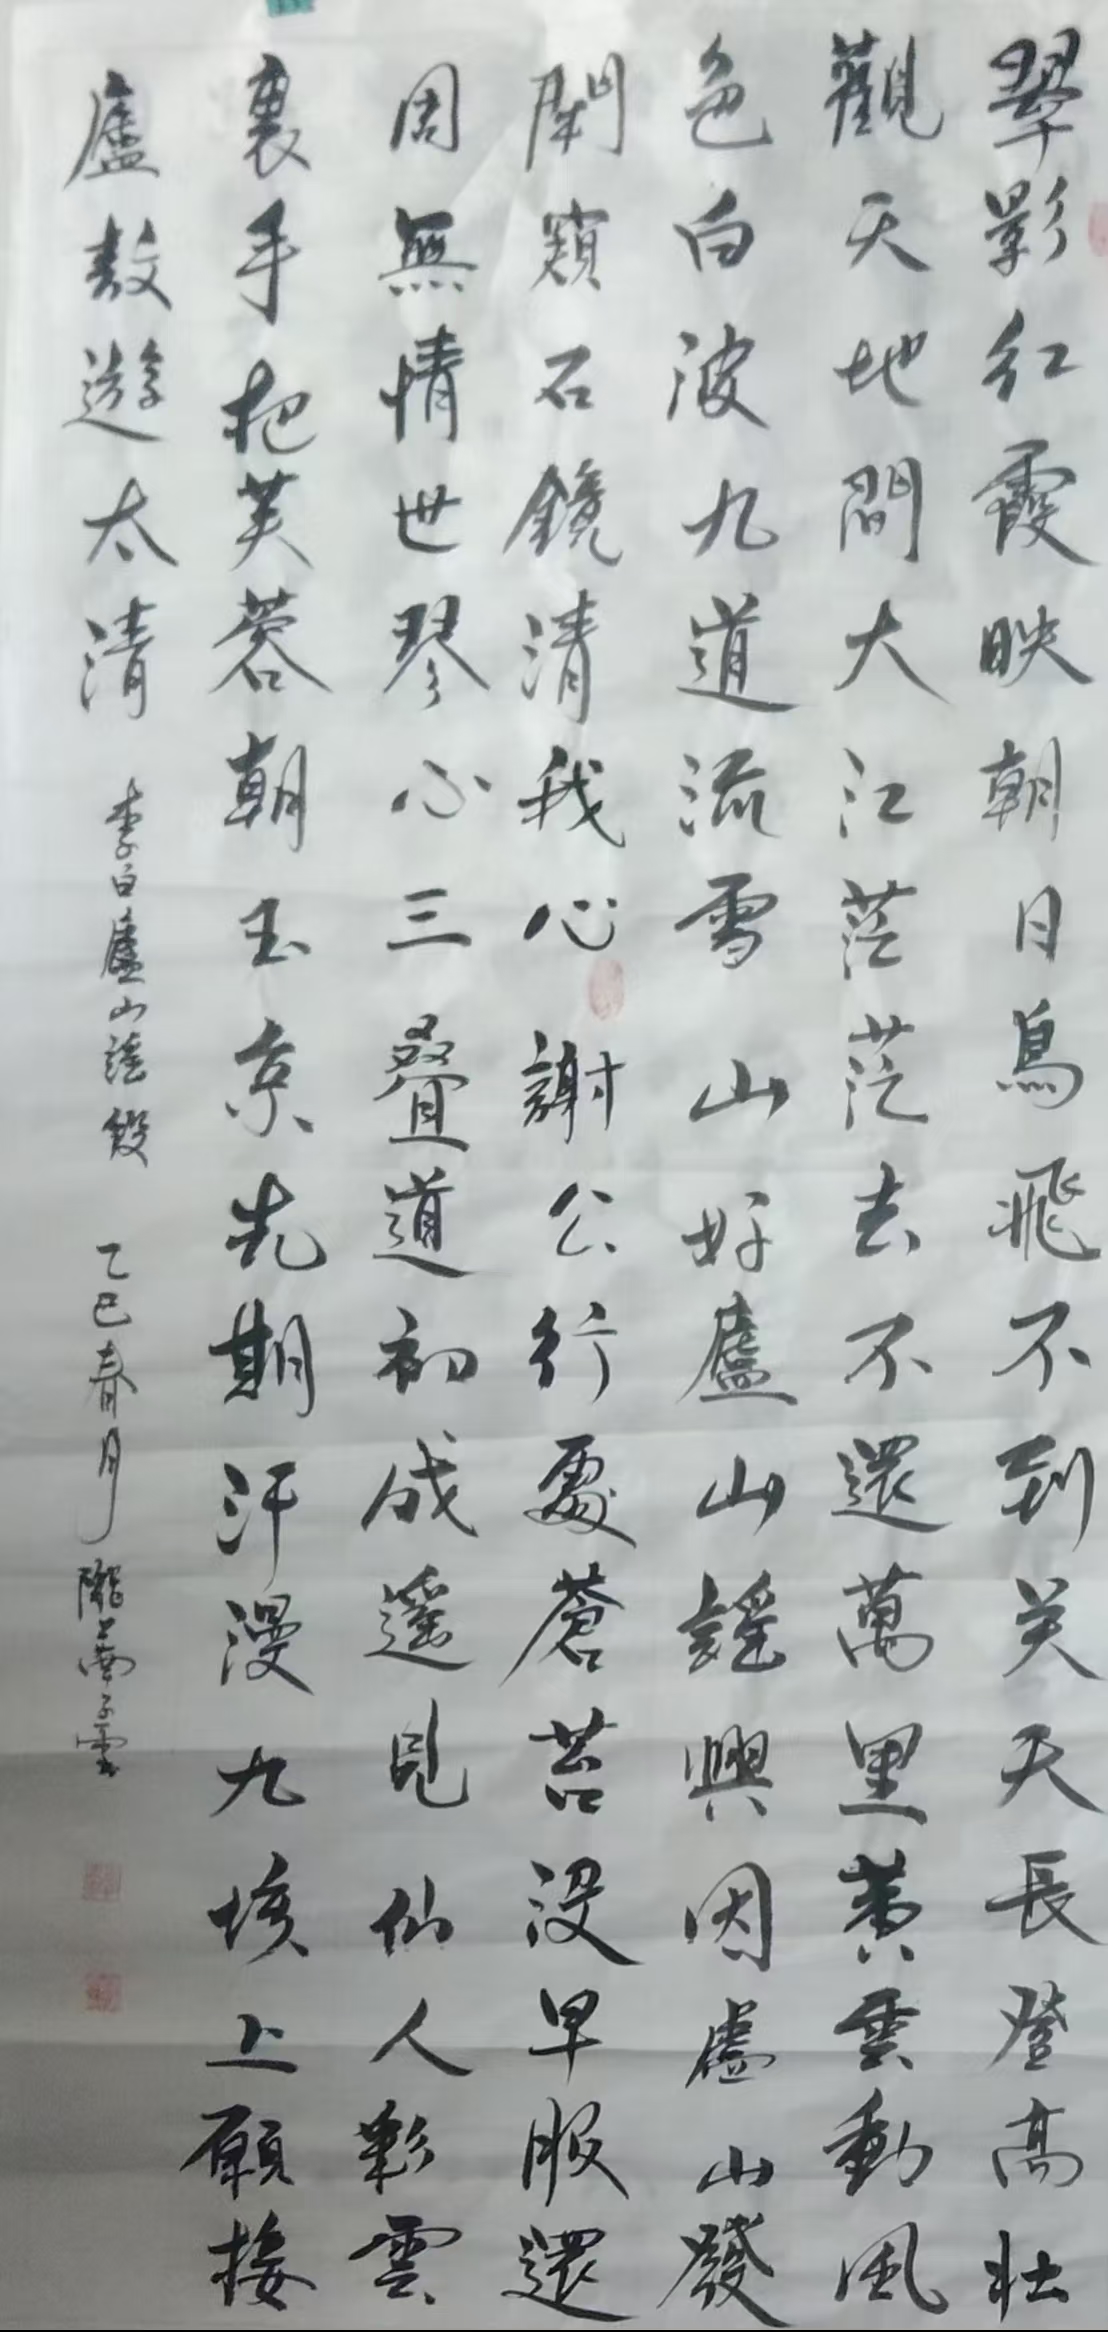 翠影紅霞映朝日鳥飛不到吴天長登高壯
觀天地間大江茫茫去不還萬里黄雲動風
色白波九道流雪山好廬山謠興因廬山發
閑窺石鏡清我心謝公行處蒼苔没早服還
周無情世琴心三疊道初成遥見仙人彩雲
裏手把芙蓉朝玉京先期汗漫九垓上願接
廬敖遊太清
李白廬山謠段
乙巳春月